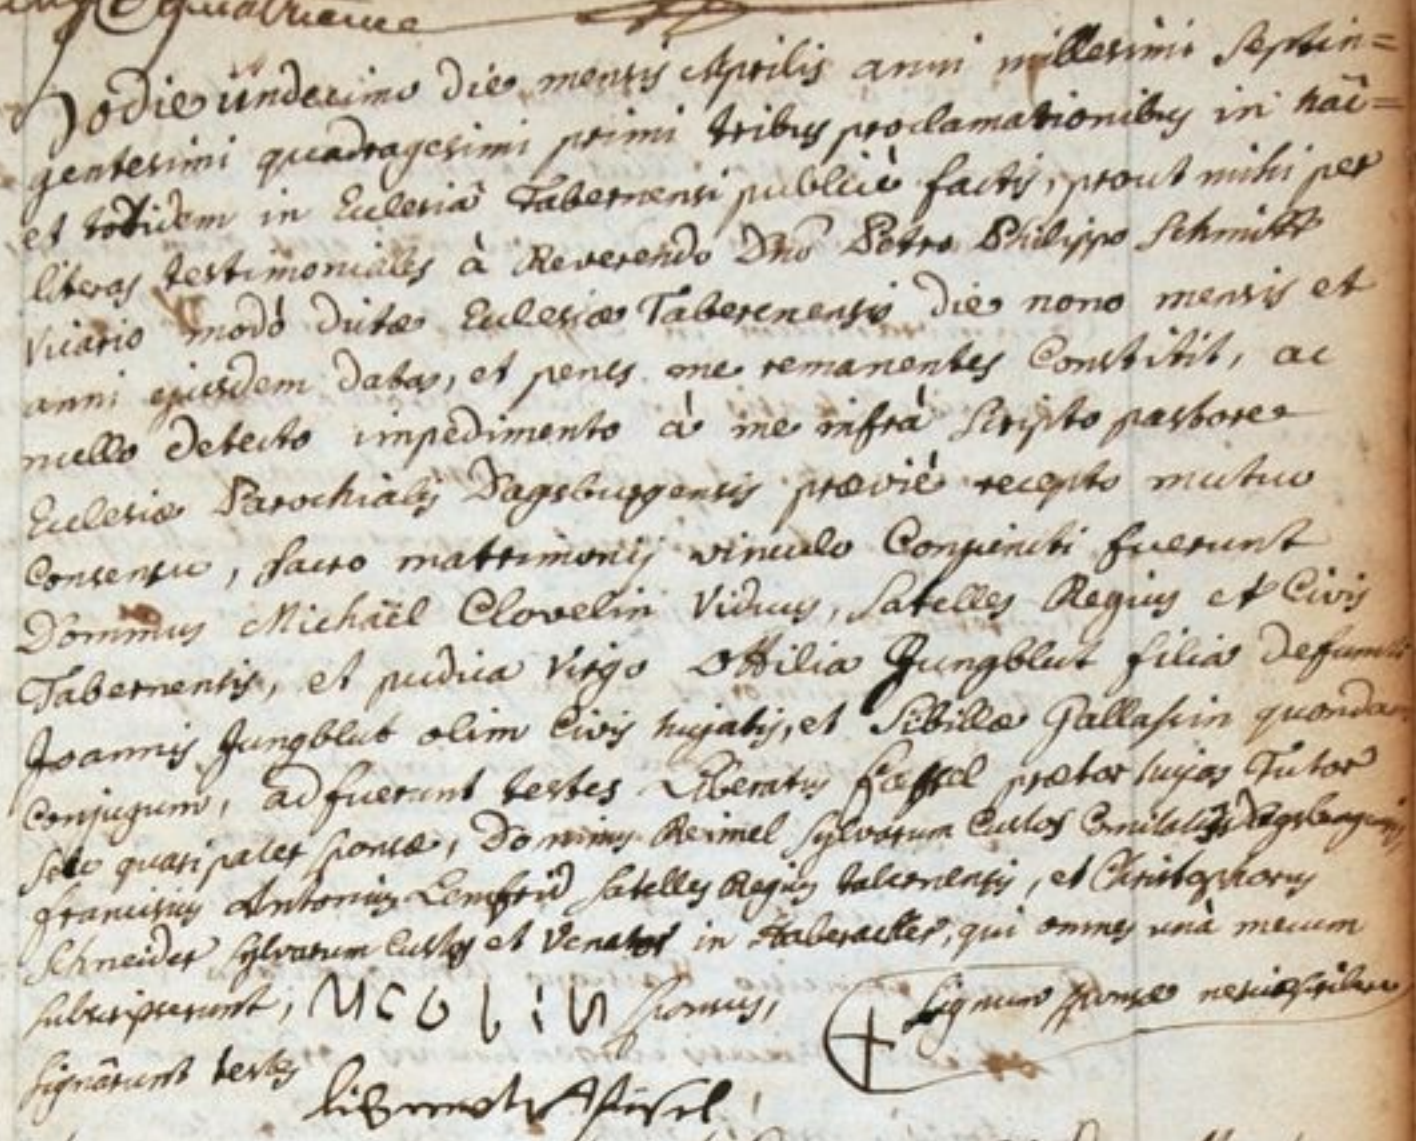 quatrieme
Hodie undecimo die mensis Aprilis anni millesimi septin=
gentesimi quadragesimi primi tribus proclamationibus in hac=
et totidem in Eclesiâ Tabernensi publicè factis, prout mihi per
literas testimoniales à Reverendo Dno Petro Philippo Schmitt
Vicario modò dictæ Eclesiæ Taberenensis die nono mensis et
anni ejusdem datas, et penes me remanentes Constitit, ac
nullo detecto impedimento à me infrà scripto pastore
Eclesiæ Parochialis Dagsburgensis prævié recepto mutuo
Consensu, sacro matrimonij vinculo Conjuncti fuerunt
Dominus Michaël Clovelin Viduus, satelles Regius et Civis
Tabernensis, et pudica Virgo Ottilia Jungblut filia defuncti
Joannis Jungblut olim Civis hujatis, et Sibillæ Gallascin quondam
Conjugum, adfuerunt testes Liberatus prætor hujas Tutor
seu quasi pater sponsæ, Dominus Reimel Sylvarum Custos Comitatus Dagsburgensis
franciscus Antonius satelles Regius tabernensis, et Christophorus
Schneider sylvarum Custos et Venator in qui omnes unà mecum
subscripserunt, M C L I N sponsus, Signum sponsæ nesciæ scribere
signârunt testes